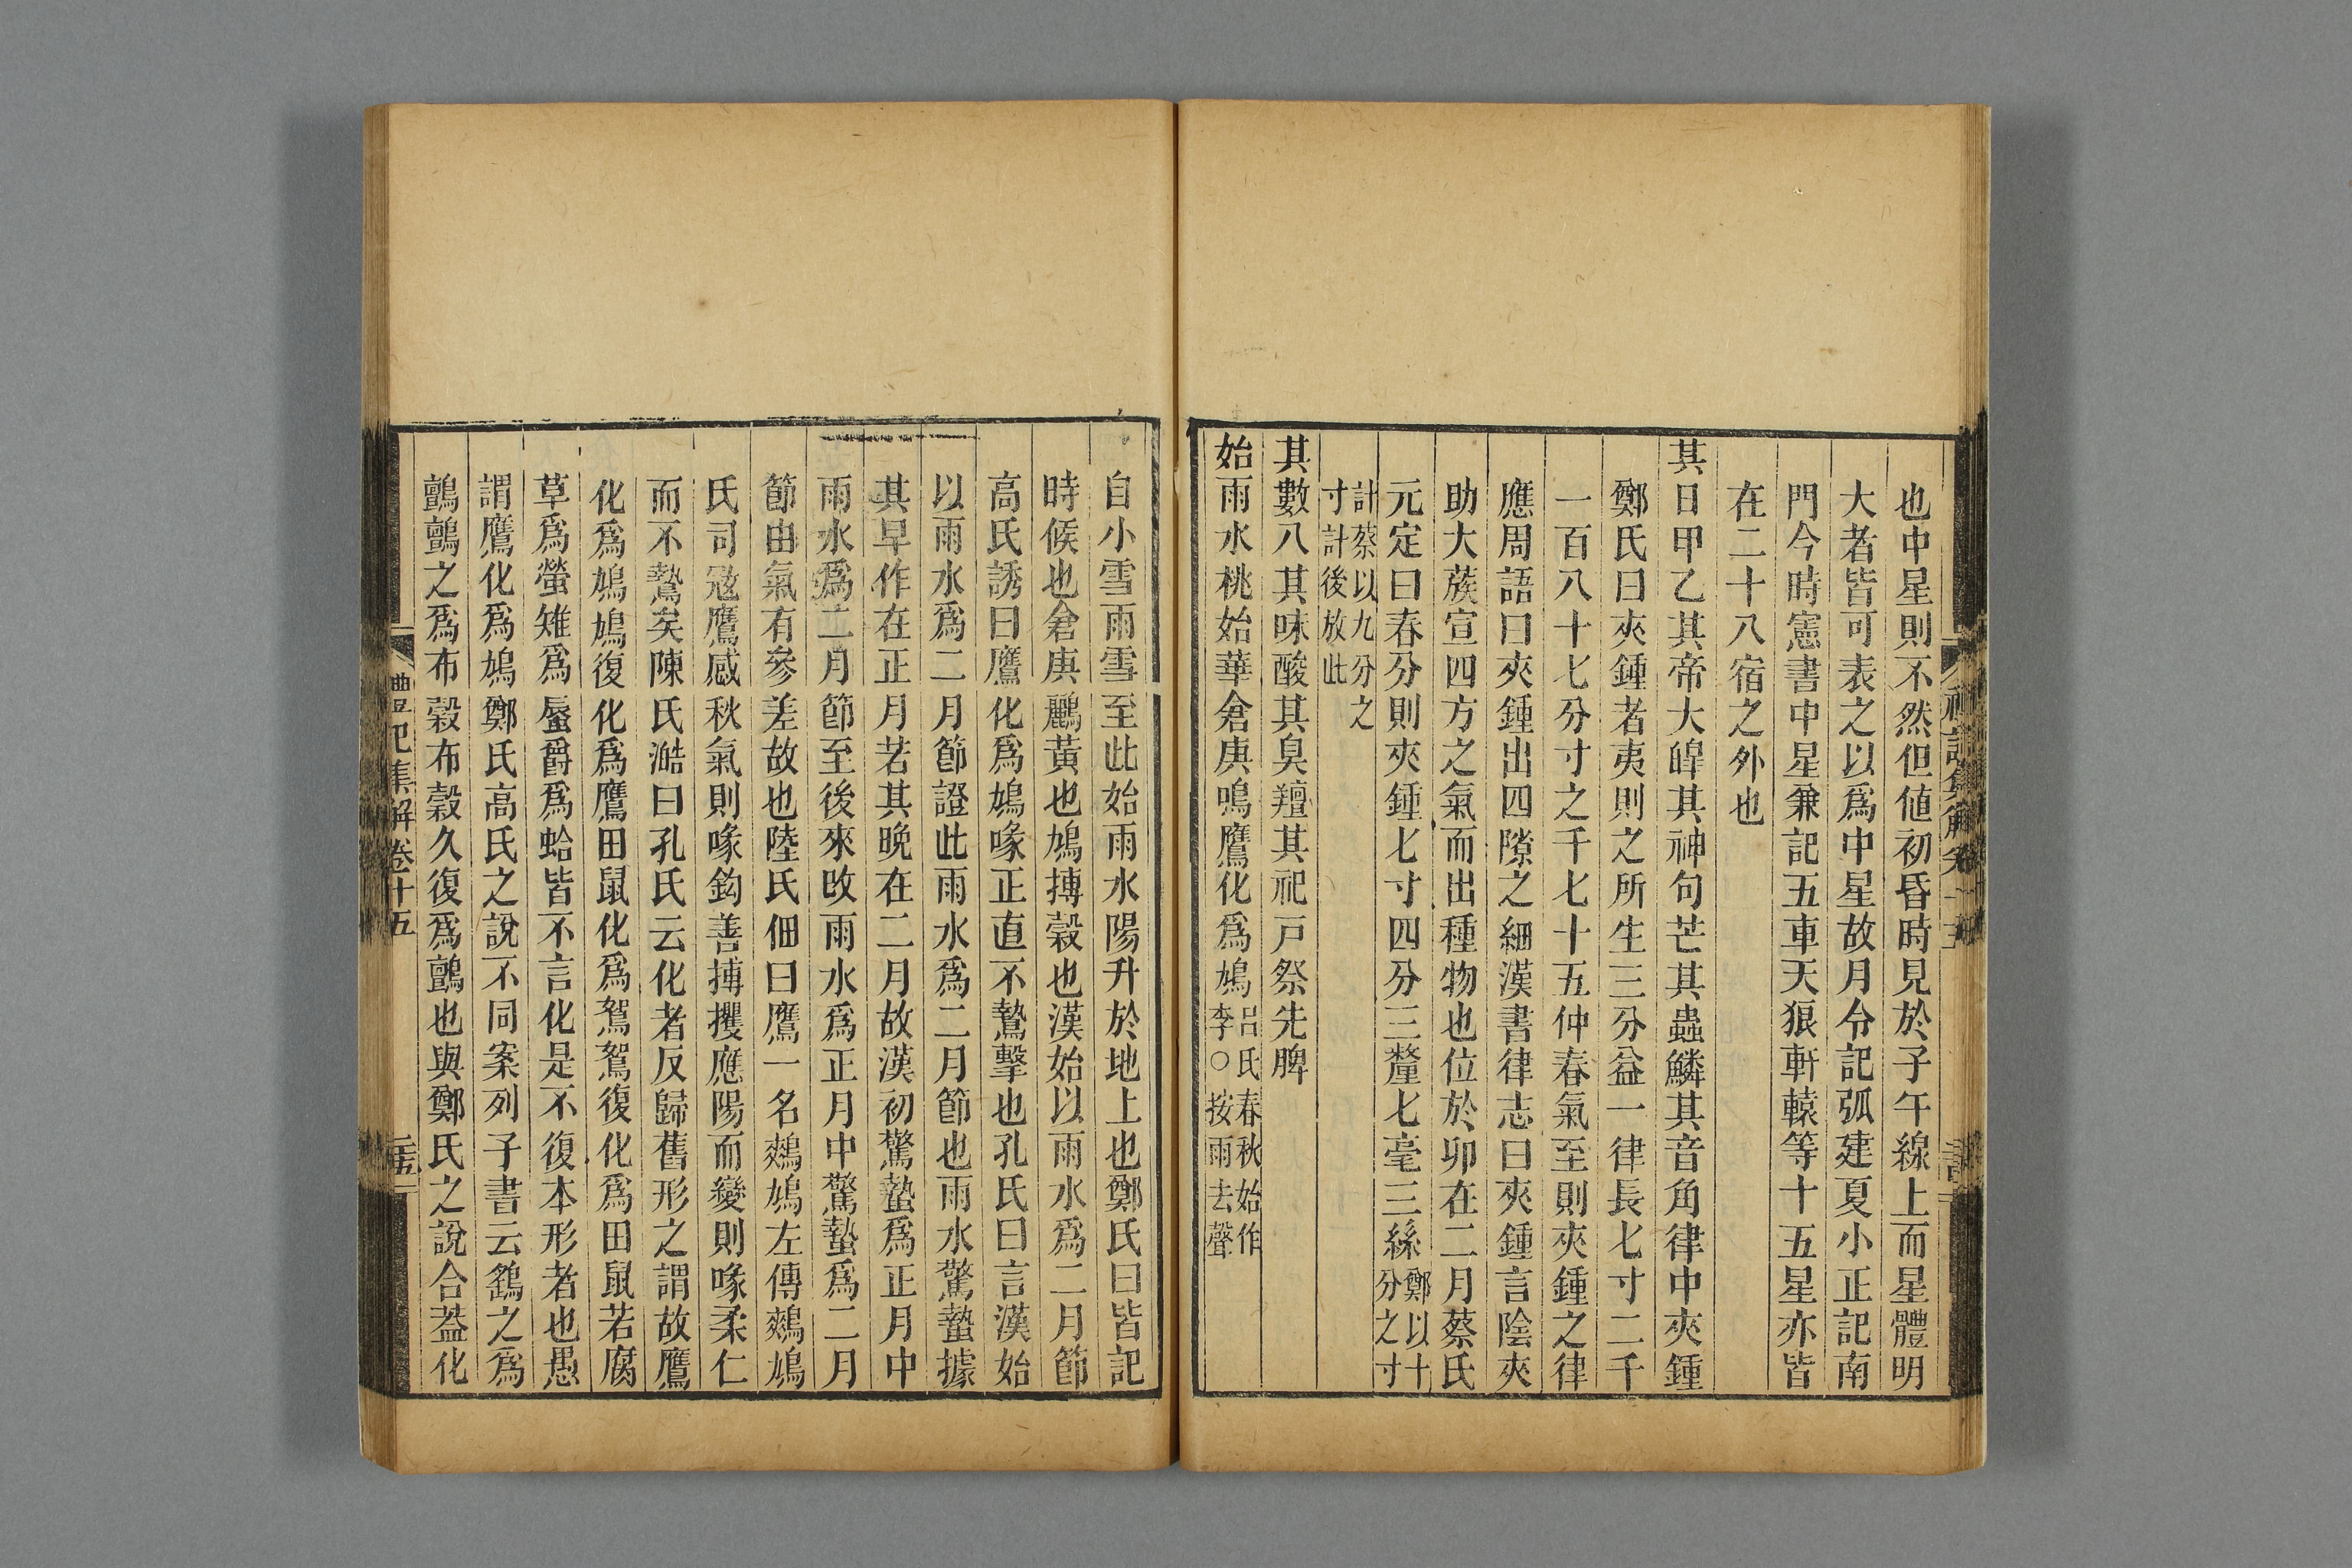 也中星則不然但値初昏時見於子午線上而星體明
大者皆可表之以爲中星故月令記弧建夏小正記南
門今時憲書中星兼記五車天狼軒轅等十五星亦皆
在二十八宿之外也
其日甲乙其帝大皡其神句芒其蟲鱗其音角律中夾鍾
鄭氏曰夾鍾者夷則之所生三分益一律長七寸二千
一百八十七分寸之千七十五仲春氣至則夾鍾之律
應周語曰夾鍾出四隙之細漢書律志曰夾鍾言陰夾
助大蔟宣四方之氣而出種物也位於卯在二月蔡氏
元定曰春分則夾鍾七寸四分三釐七毫三絲鄭以十分之寸
計蔡以九分之寸計後放此
其數八其味酸其臭羶其祀戸祭先脾
始雨水桃始華倉庚鳴鷹化爲鳩呂氏春秋始作李○按雨去聲
自小雪雨雪至此始雨水陽升於地上也鄭氏曰皆記
時候也倉庚鸝黃也鳩搏穀也漢始以雨水爲二月節
高氏誘曰鷹化爲鳩喙正直不鷙擊也孔氏曰言漢始
以雨水爲二月節證此雨水爲二月節也雨水驚蟄據
其早作在正月若其晚在二月故漢初驚蟄爲正月中
雨水爲二月節至後來改雨水爲正月中驚蟄爲二月
節由氣有參差故也陸氏佃曰鷹一名鷞鳩左傳鷞鳩
氏司寇鷹感秋氣則喙鈎善搏攫應陽而變則喙柔仁
而不鷙矣陳氏澔曰孔氏云化者反歸舊形之謂故鷹
化爲鳩鳩復化爲鷹田鼠化爲鴽鴽復化爲田鼠若腐
草爲螢雉爲蜃爵爲蛤皆不言化是不復本形者也愚
謂鷹化爲鳩鄭氏高氏之說不同案列子書云鷂之爲
鸇鸇之爲布穀布穀久復爲鸇也與鄭氏之說合蓋化
禮記集解卷十五